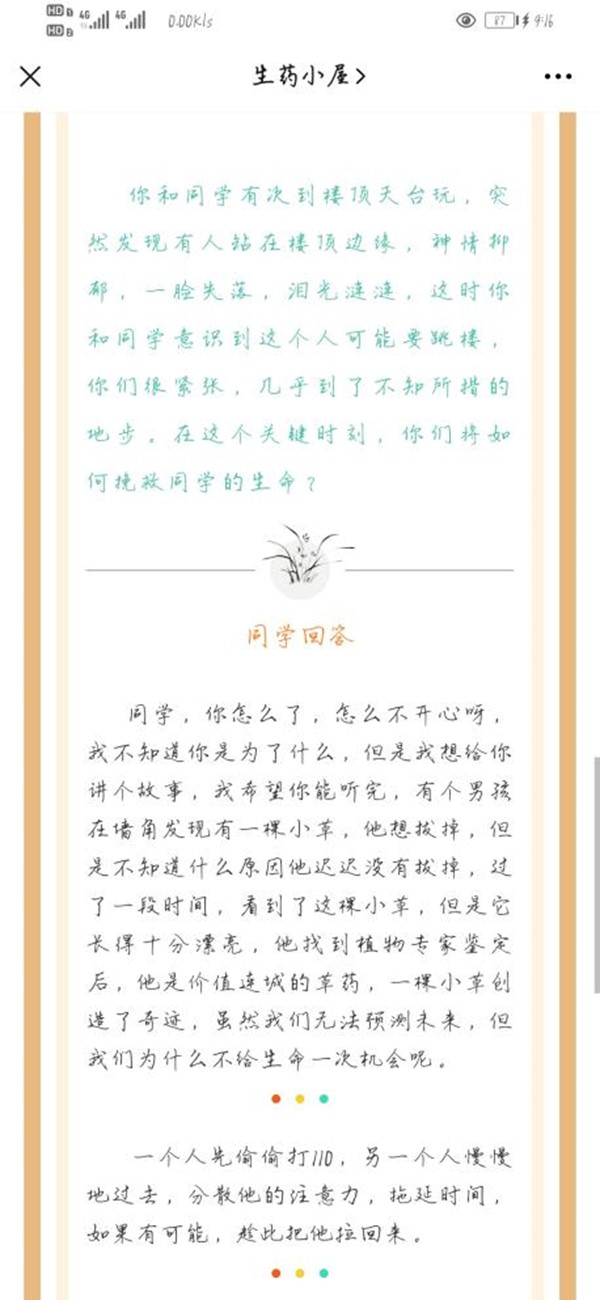 HD 1 4G 4G 0.00K/s 87 9:16
HD 2
生药小屋
你和同学有次到楼顶天台玩，突
然发现有人站在楼顶边缘，神情抑
郁，一脸失落，泪光涟涟，这时你
和同学意识到这个人可能要跳楼，
你们很紧张，几乎到了不知所措的
地步。在这个关键时刻，你们将如
何挽救同学的生命？
同学回答
同学，你怎么了，怎么不开心呀，
我不知道你是为了什么，但是我想给你
讲个故事，我希望你能听完，有个男孩
在墙角发现有一棵小草，他想拔掉，但
是不知道什么原因他迟迟没有拔掉，过
了一段时间，看到了这棵小草，但是它
长得十分漂亮，他找到植物专家鉴定
后，他是价值连城的草药，一棵小草创
造了奇迹，虽然我们无法预测未来，但
我们为什么不给生命一次机会呢。
一个人先偷偷打110，另一个人慢慢
地过去，分散他的注意力，拖延时间，
如果有可能，趁此把他拉回来。